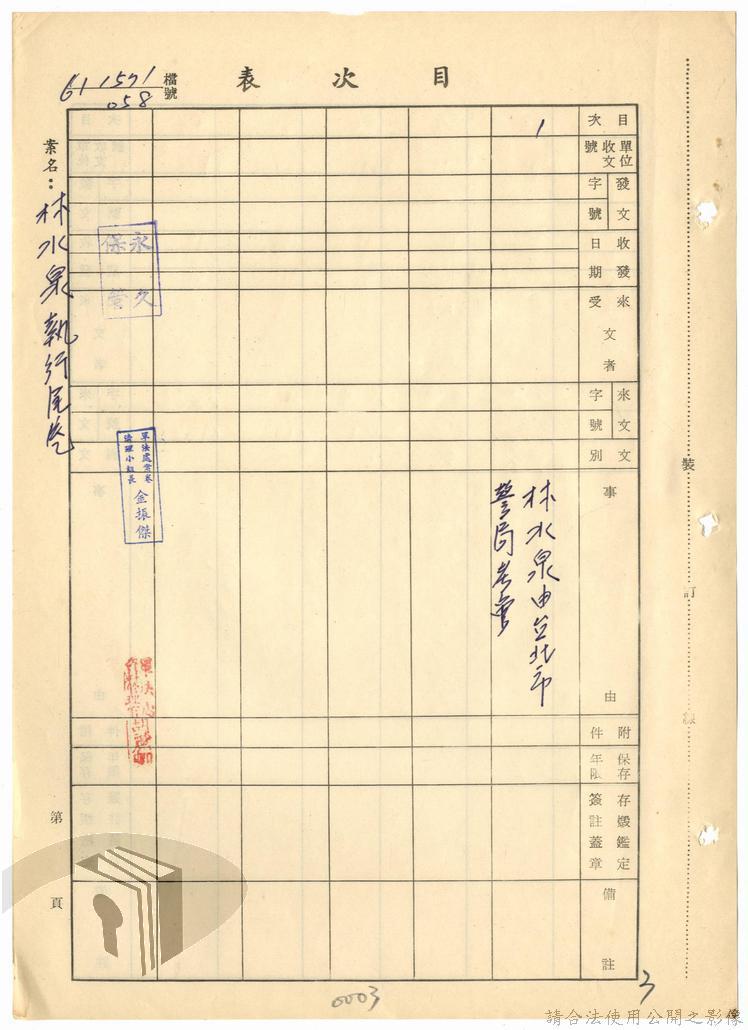 目次表
檔號
61 1571
058
案名：林水泉執行
目次
單位收文號
發文字號
收發日期
來受文者
來文字號
文別
事由
附件
保存年限
存燬鑑定簽註蓋章
備註
1
林水泉由台北市
警局
永久保管
軍法處案卷
清理小組長
金振傑
裝訂線
第頁
0003
3
請合法使用公開之影像